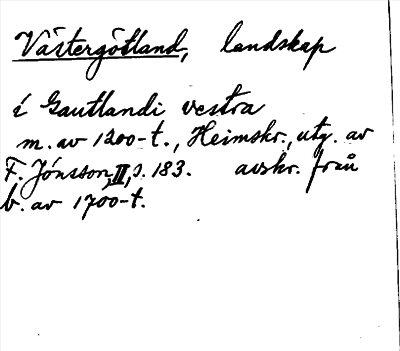 Västergötland, landskap
í Gautlandi vestra
m. av 1200-t., Heimskr., utg. av
F. Jónsson, II, s. 183. avskr. från
b. av 1700-t.